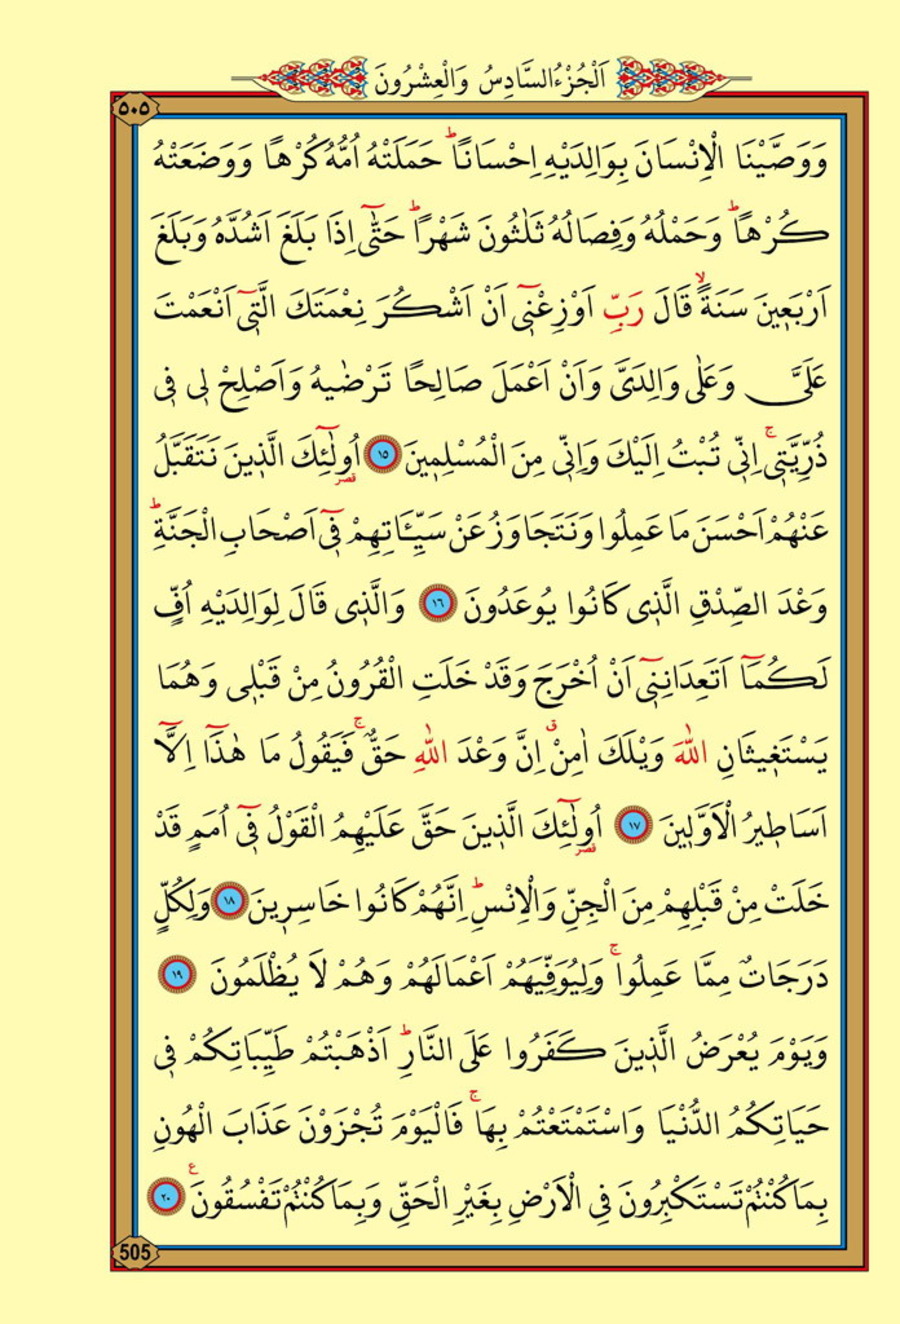 اَلْجُزْءُ السَّادِسُ وَالْعِشْرُونَ
٥٠٥
وَوَصَّيْنَا الْاِنْسَانَ بِوَالِدَيْهِ اِحْسَانًاۜ حَمَلَتْهُ اُمُّهُ كُرْهًا وَوَضَعَتْهُ
كُرْهًاۜ وَحَمْلُهُ وَفِصَالُهُ ثَلٰثُونَ شَهْرًاۜ حَتّٰٓى اِذَا بَلَغَ اَشُدَّهُ وَبَلَغَ
اَرْبَع۪ينَ سَنَةًۙ قَالَ رَبِّ اَوْزِعْن۪ٓي اَنْ اَشْكُرَ نِعْمَتَكَ الَّت۪ٓي اَنْعَمْتَ
عَلَيَّ وَعَلٰى وَالِدَيَّ وَاَنْ اَعْمَلَ صَالِحًا تَرْضٰيهُ وَاَصْلِحْ ل۪ي ف۪ي
ذُرِّيَّت۪يۚ اِنّ۪ي تُبْتُ اِلَيْكَ وَاِنّ۪ي مِنَ الْمُسْلِم۪ينَ ١٥ اُو۬لٰٓئِكَ الَّذ۪ينَ نَتَقَبَّلُ
قصر
عَنْهُمْ اَحْسَنَ مَا عَمِلُوا وَنَتَجَاوَزُ عَنْ سَيِّـَٔاتِهِمْ ف۪ٓي اَصْحَابِ الْجَنَّةِۜ
وَعْدَ الصِّدْقِ الَّذ۪ي كَانُوا يُوعَدُونَ ١٦ وَالَّذ۪ي قَالَ لِوَالِدَيْهِ اُفٍّ
لَكُمَٓا اَتَعِدَانِن۪ٓي اَنْ اُخْرَجَ وَقَدْ خَلَتِ الْقُرُونُ مِنْ قَبْل۪ي وَهُمَا
يَسْتَغ۪يثَانِ اللّٰهَ وَيْلَكَ اٰمِنْۗ اِنَّ وَعْدَ اللّٰهِ حَقٌّۚ فَيَقُولُ مَا هٰذَٓا اِلَّٓا
اَسَاط۪يرُ الْاَوَّل۪ينَ ١٧ اُو۬لٰٓئِكَ الَّذ۪ينَ حَقَّ عَلَيْهِمُ الْقَوْلُ ف۪ٓي اُمَمٍ قَدْ
قصر
خَلَتْ مِنْ قَبْلِهِمْ مِنَ الْجِنِّ وَالْاِنْسِۜ اِنَّهُمْ كَانُوا خَاسِر۪ينَ ١٨ وَلِكُلٍّ
دَرَجَاتٌ مِمَّا عَمِلُواۚ وَلِيُوَفِّيَهُمْ اَعْمَالَهُمْ وَهُمْ لَا يُظْلَمُونَ ١٩
وَيَوْمَ يُعْرَضُ الَّذ۪ينَ كَفَرُوا عَلَى النَّارِۜ اَذْهَبْتُمْ طَيِّبَاتِكُمْ ف۪ي
حَيَاتِكُمُ الدُّنْيَا وَاسْتَمْتَعْتُمْ بِهَاۚ فَالْيَوْمَ تُجْزَوْنَ عَذَابَ الْهُونِ
بِمَا كُنْتُمْ تَسْتَكْبِرُونَ فِي الْاَرْضِ بِغَيْرِ الْحَقِّ وَبِمَا كُنْتُمْ تَفْسُقُونَ ع ٢٠
505